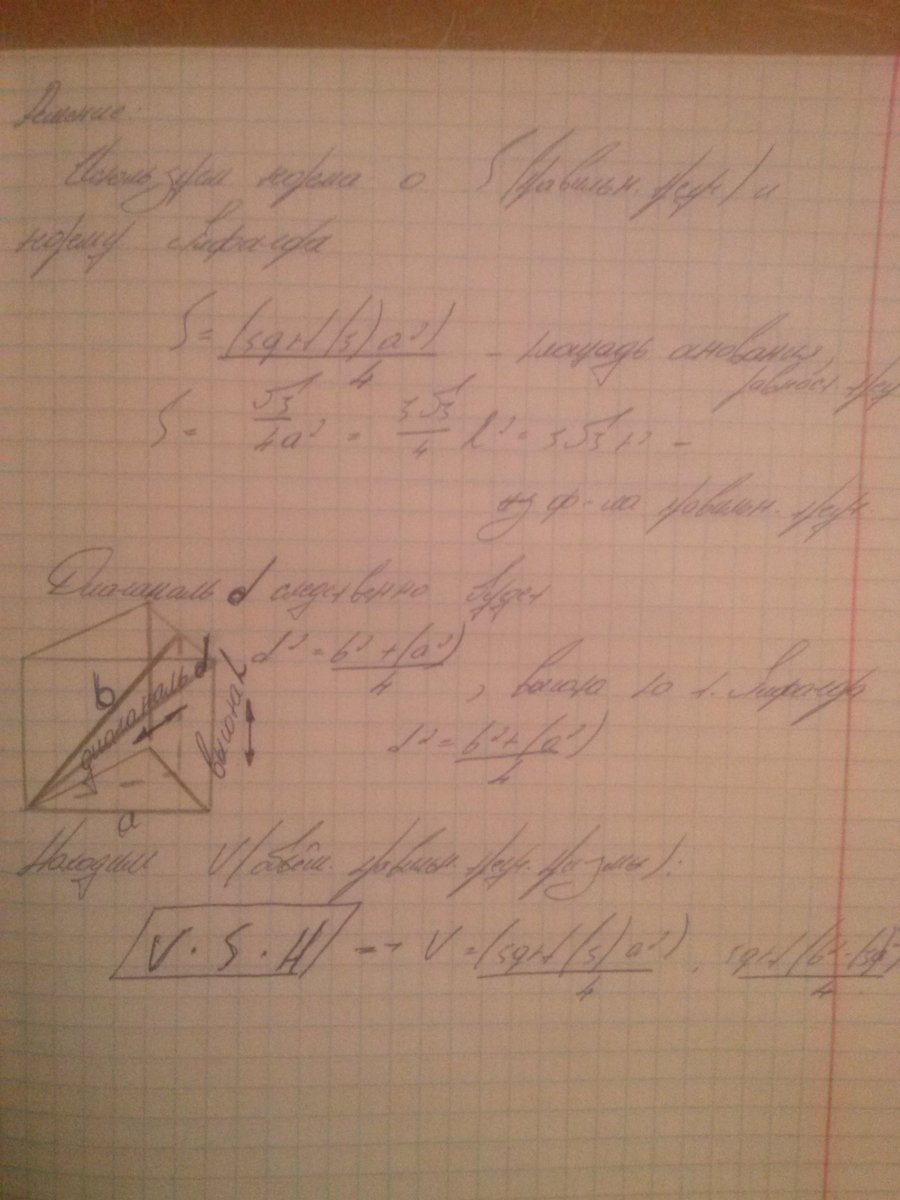 Решение:
Используем теорема о S (правильн. треуг.) и
теорему Пифагора
S = (sqrt(3) a²) / 4 - площадь основания,
равност. треуг
S = √3 / 4a² = 3√3 / 4 R² = 3√3 r² -
из ф-ла правильн. треуг.
Диагональ d следственно будет
d² = b² + (a²) / 4 , высота по т. Пифагора
d² = b² + (a²) / 4
b
диагональ d
высота h
a
Находим V (объём. правильн. треуг. призмы):
V · S · H --> V = (sqrt(3) a²) / 4 .